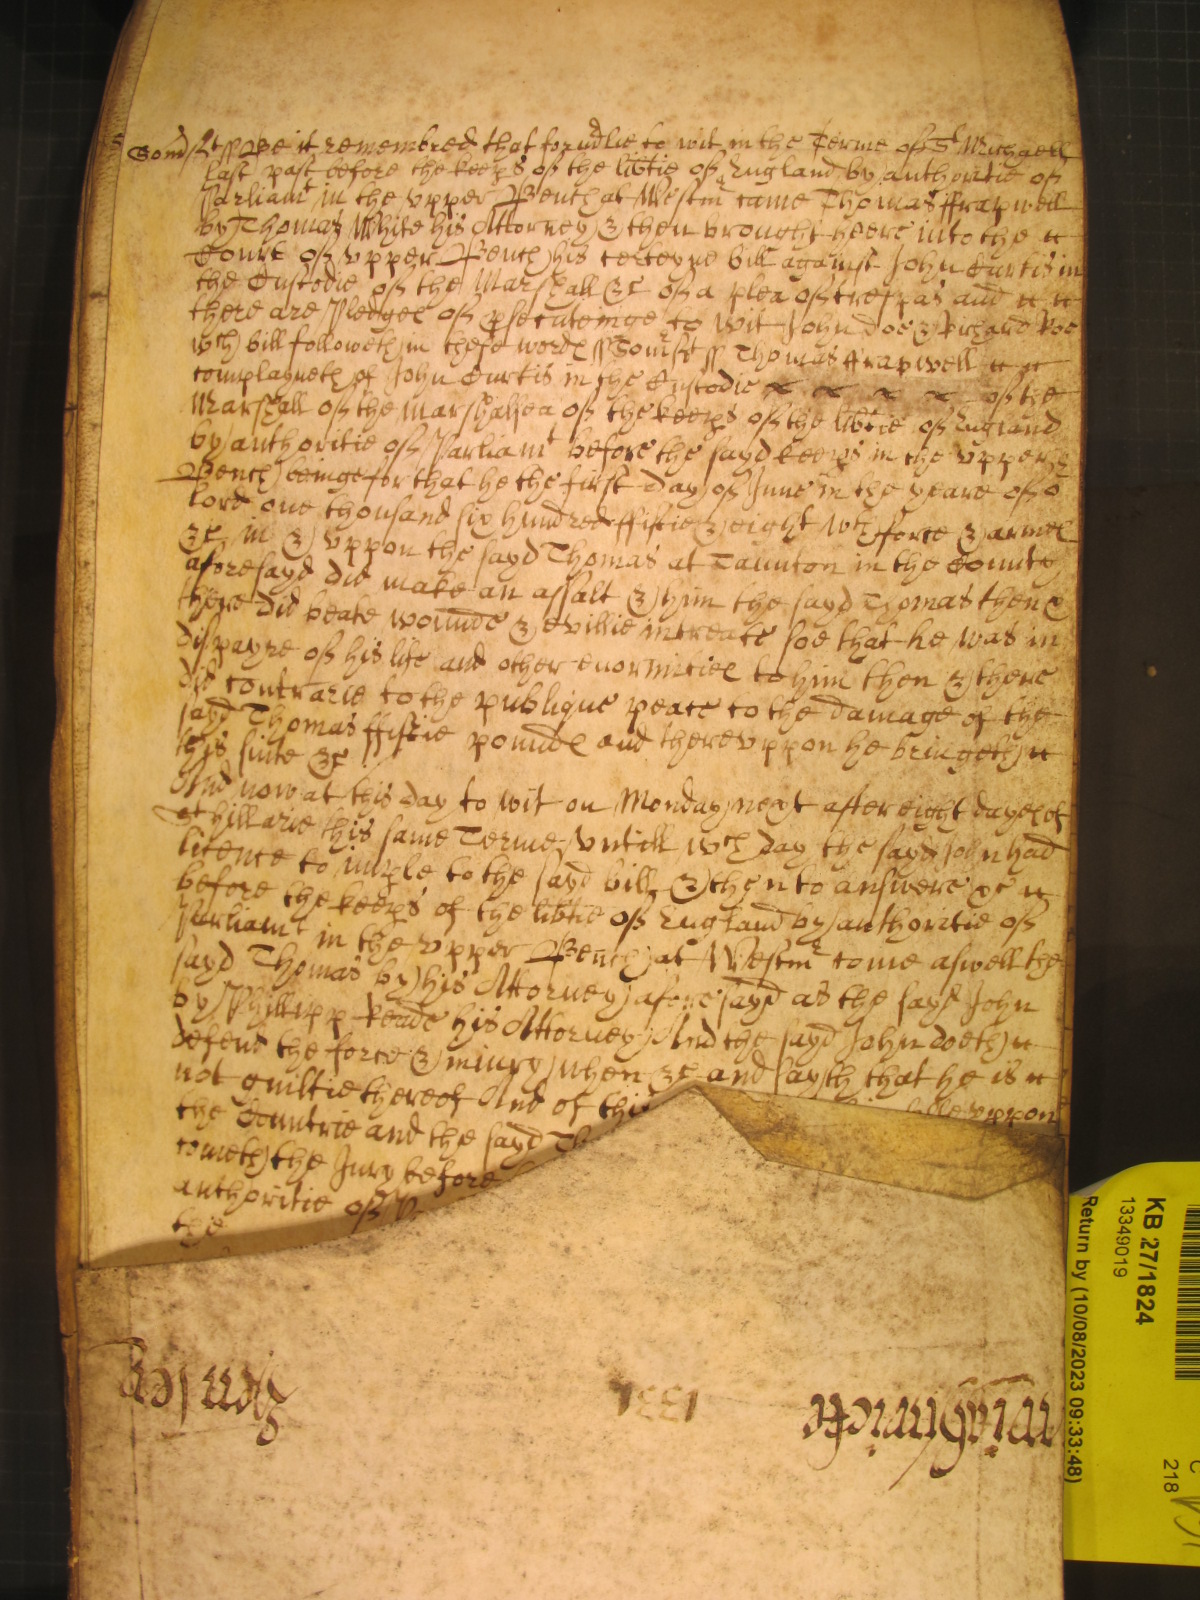 Somsᵗ ss Be it remembred that formᵈlie to wit in the Terme of Sᵗ Michaell
last past before the keepᵉs of the libtie of England by authoritie of
Parliamᵗ in the vpper Bench at Westmʳ came Thomas ffrapwell
by Thomas White his Attorney & then brought heere into the
Court of vpper Bench his certeyne bill against John Curtis in
the Custodie of the Marshall &c of a plea of trespas and
there are Pledges of psecuteinge to wit John Doe & Richard Roe
wᶜʰ bill followeth in these words ss Somˢᵗ ss Thomas ffrapwell
complayneth of John Curtis in the Custodie of the
Marshall of the Marshalsea of the keepᵉs of the libtie of England
by authoritie of Parliamᵗ before the sayd keepᵉs in the vpper
Bench beinge for that he the first day of June in the yeare of oʳ
lord one thousand six hundred ffiftie & eight wᵗʰ force & armes
&c in & vppon the sayd Thomas at Taunton in the County
aforesayd did make an assalt & him the sayd Thomas then &
there did beate wounde & evillie intreate soe that he was in
dispayre of his life and other enormities to him then & there
did contrarie to the publique peace to the damage of the
sayd Thomas ffiftie pounds and therevppon he bringeth
this suite &c
And now at this day to wit on Monday next after eight dayes of
Sᵗ Hillarie this same Terme vntill wᶜʰ day the sayd John had
licence to imple to the sayd bill & then to answere &c
before the keepᵉs of the libtie of England by authoritie of
Parliamᵗ in the vpper Bench at Westmʳ come aswell the
sayd Thomas by his Attorney aforesayd as the sayd John
by Phillipp Reade his Attorney And the sayd John doeth
defend the force & iniury when &c and sayth that he is
not guiltie thereof And of this vppon
the Countrie and the sayd Th
cometh the Jury before
authoritie of P
the
1331
KB 27/1824
13349019
Return by (10/08/2023 09:33:48)
218